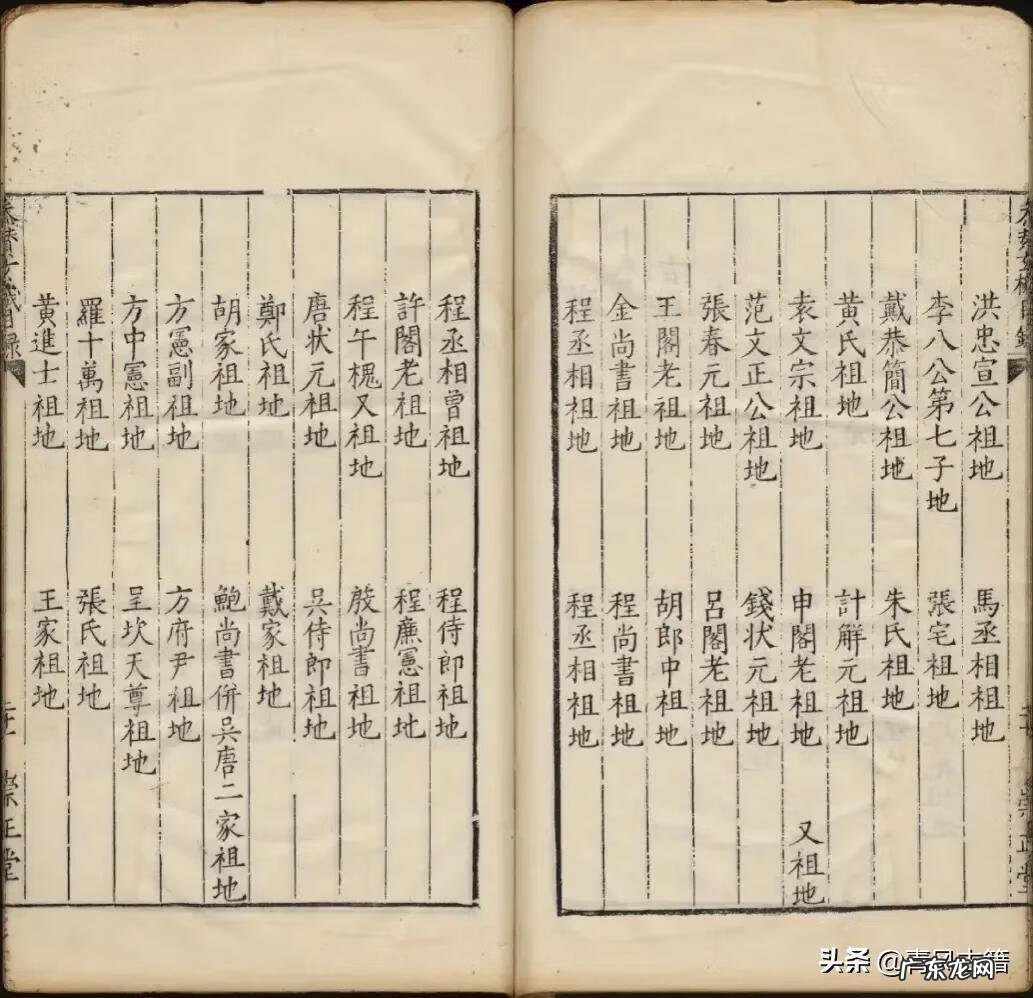 洪忠宣公祖地 馬丞相祖地
李八公第七子地 張宅祖地
戴恭簡公祖地 朱氏祖地
黄氏祖地 計解元祖地
袁文宗祖地 申閣老祖地 又祖地
范文正公祖地 錢状元祖地
張春元祖地 呂閣老祖地
王閣老祖地 胡郎中祖地
金尚書祖地 程尚書祖地
程丞相祖地 程丞相祖地
程丞相曾祖地 程侍郎祖地
許閣老祖地 程廉憲祖地
程午槐又祖地 殷尚書祖地
唐状元祖地 吳侍郎祖地
鄭氏祖地 戴家祖地
胡家祖地 鮑尚書併吳唐二家祖地
方憲副祖地 方府尹祖地
方中憲祖地 呈坎天尊祖地
羅十萬祖地 張氏祖地
黄進士祖地 王家祖地
崇正堂
头条
广东龙网